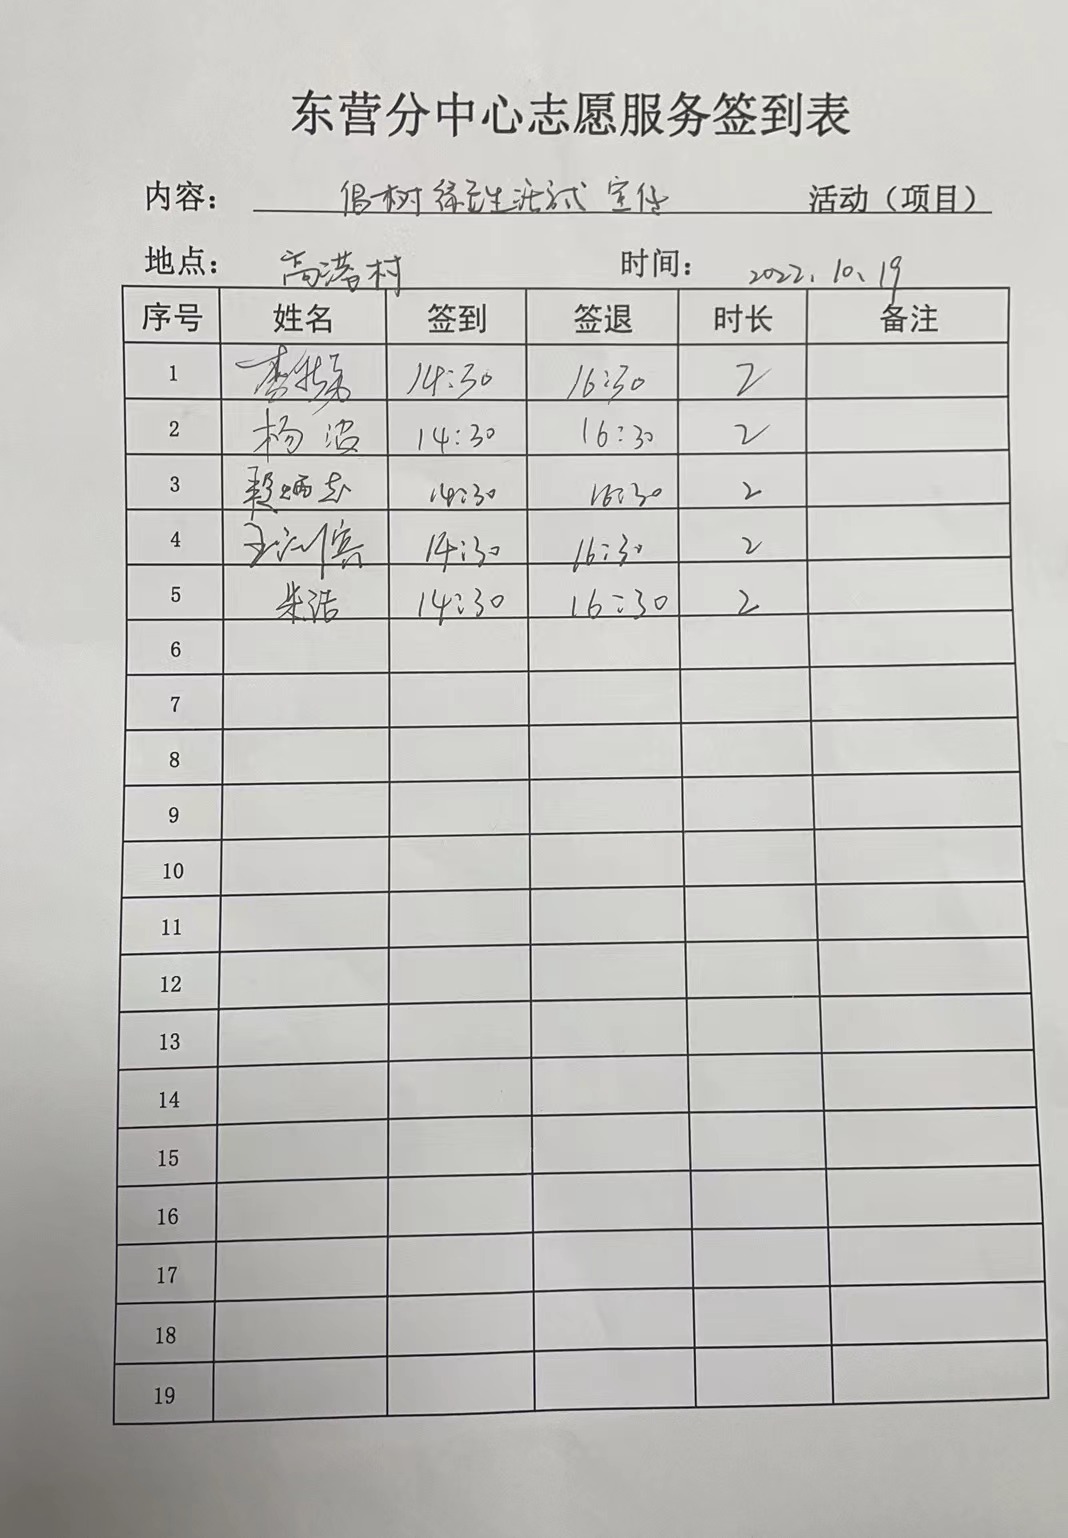 东营分中心志愿服务签到表
内容： 倡树绿色生活式宣传 活动（项目）
地点： 高港村 时间： 2022.10.19
序号 姓名 签到 签退 时长 备注
1 14:30 16:30 2
2 杨波 14:30 16:30 2
3 14:30 16:30 2
4 王江川宾 14:30 16:30 2
5 朱浩 14:30 16:30 2
6
7
8
9
10
11
12
13
14
15
16
17
18
19